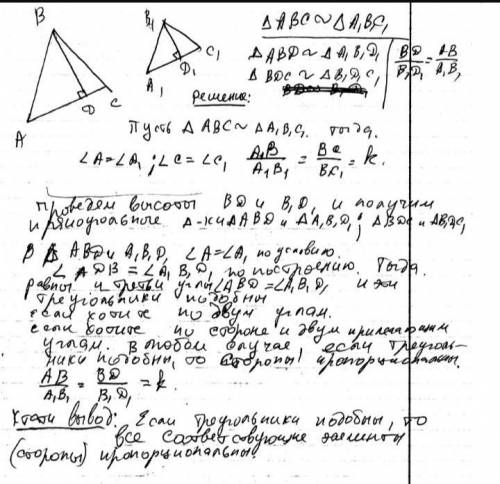 B
A
D
C
B₁
A₁
D₁
C₁
Δ ABC ∾ Δ A₁B₁C₁
Δ ABD ∾ Δ A₁B₁D₁
Δ BDC ∾ Δ B₁D₁C₁
BD/B₁D₁ = AB/A₁B₁
Решение:
Пусть Δ ABC ∾ Δ A₁B₁C₁. тогда.
∠A=∠A₁; ∠C=∠C₁ A₁B/A₁B₁ = BC/B₁C₁ = k.
Проведем высоты BD и B₁D₁ и получим
прямоугольные Δ-ки Δ ABD и Δ A₁B₁D₁; Δ BDC и ΔB₁D₁C₁
В Δ ABD и A₁B₁D₁ ∠A=∠A₁ по условию.
∠ADB = ∠A₁B₁D₁ по построению. Тогда
равны и третьи углы ∠ABD=∠A₁B₁D₁ и эти
треугольники подобны
если хотите по двум углам.
если хотите по стороне и двум прилежащим
углам. В любом случае если треуголь-
ники подобны, то стороны пропорциональны.
AB/A₁B₁ = BD/B₁D₁ = k.
Кстати вывод: Если треугольники подобны, то
все соответствующие элементы
(стороны) пропорциональны.